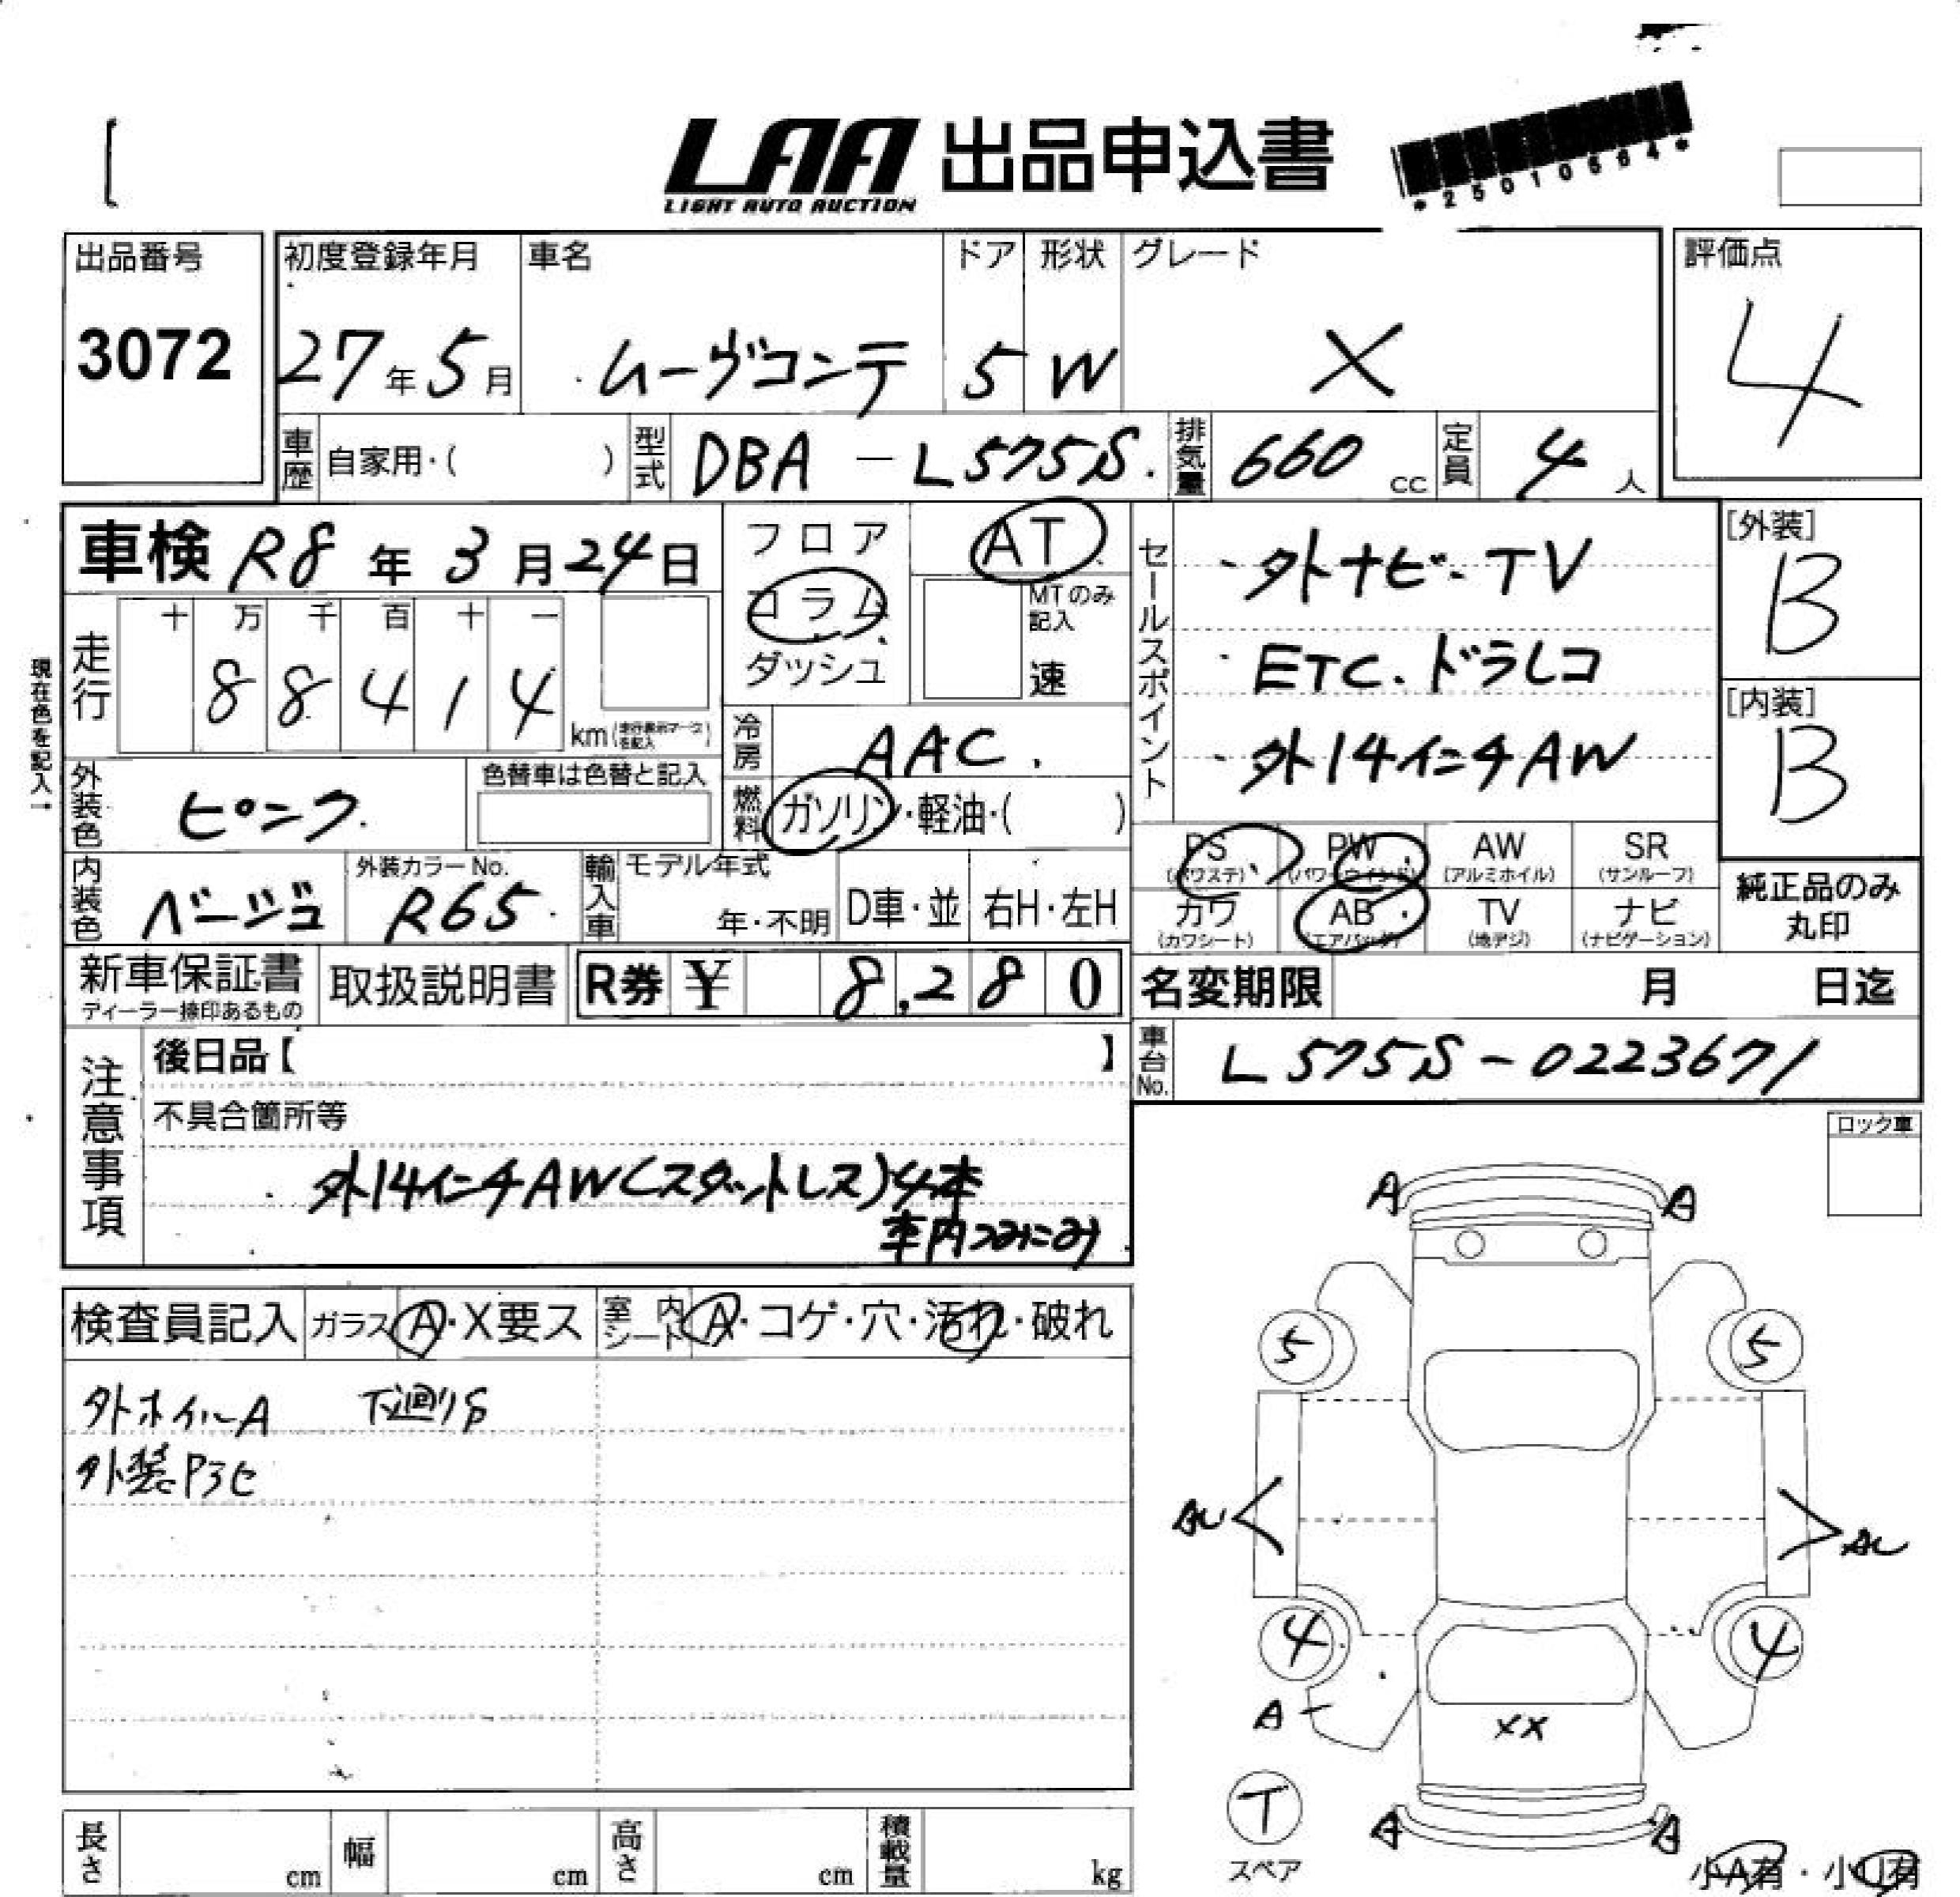 LAA 出品申込書
LIGHT AUTO AUCTION
*25010564*
出品番号 初度登録年月 車名 ドア 形状 グレード 評価点
3072 27年5月 ムーヴコンテ 5 W X 4
車歴 自家用・( ) 型式 DBA-L575S 排気量 660cc 定員 4人
車検 R8年3月24日 フロア AT セールスポイント ・外ナビ・TV [外装]
コラム MTのみ記入 B
現在色を記入→
走行 十 万 千 百 十 一
88414 km ダッシュ 速 ・ETC.ドラレコ [内装]
冷房 AAC ・外14インチAW B
外装色 ピンク 色替車は色替と記入 燃料 ガソリン・軽油・( )
PS (パワステ) PW (パワーウインドウ) AW (アルミホイル) SR (サンルーフ)
内装色 ベージュ 外装カラーNo. R65 輸入車 モデル年式 年・不明 D車・並 右H・左H
カワ (カワシート) AB (エアバッグ) TV (地デジ) ナビ (ナビゲーション) 純正品のみ丸印
新車保証書 取扱説明書 R券 ¥ 8,280 名変期限 月 日迄
ディーラー捺印あるもの
注意事項 後日品【 】 車台No. L575S-0223671
不具合箇所等
外14インチAW(スタットレス)4本
車内つみこみ
ロック車
検査員記入 ガラス A・X要ス 室内シート A・コゲ・穴・汚れ・破れ
外ホイルA 下廻りS
外装P3セ
A A
5 5
AU AU
4 4
A
XX
T
スペア
A A
小A有・小U有
長さ cm 幅 cm 高さ cm 積載量 kg